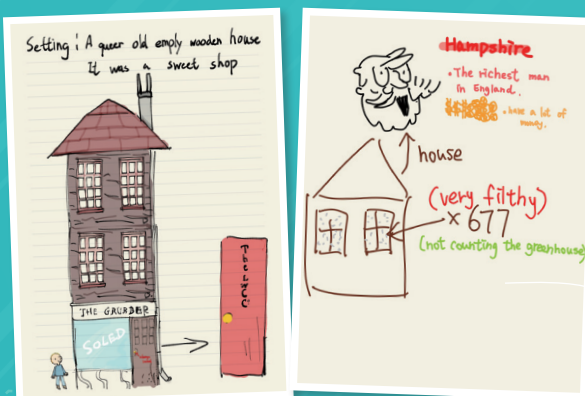 Setting: A queer old emply wooden house
It was a sweet shop
THE GRUBBER
SOLED
The LWCC
Hampshire
• The richest man
in England.
• have a lot of
money.
house
(very filthy)
× 677
(not counting the greenhouse)